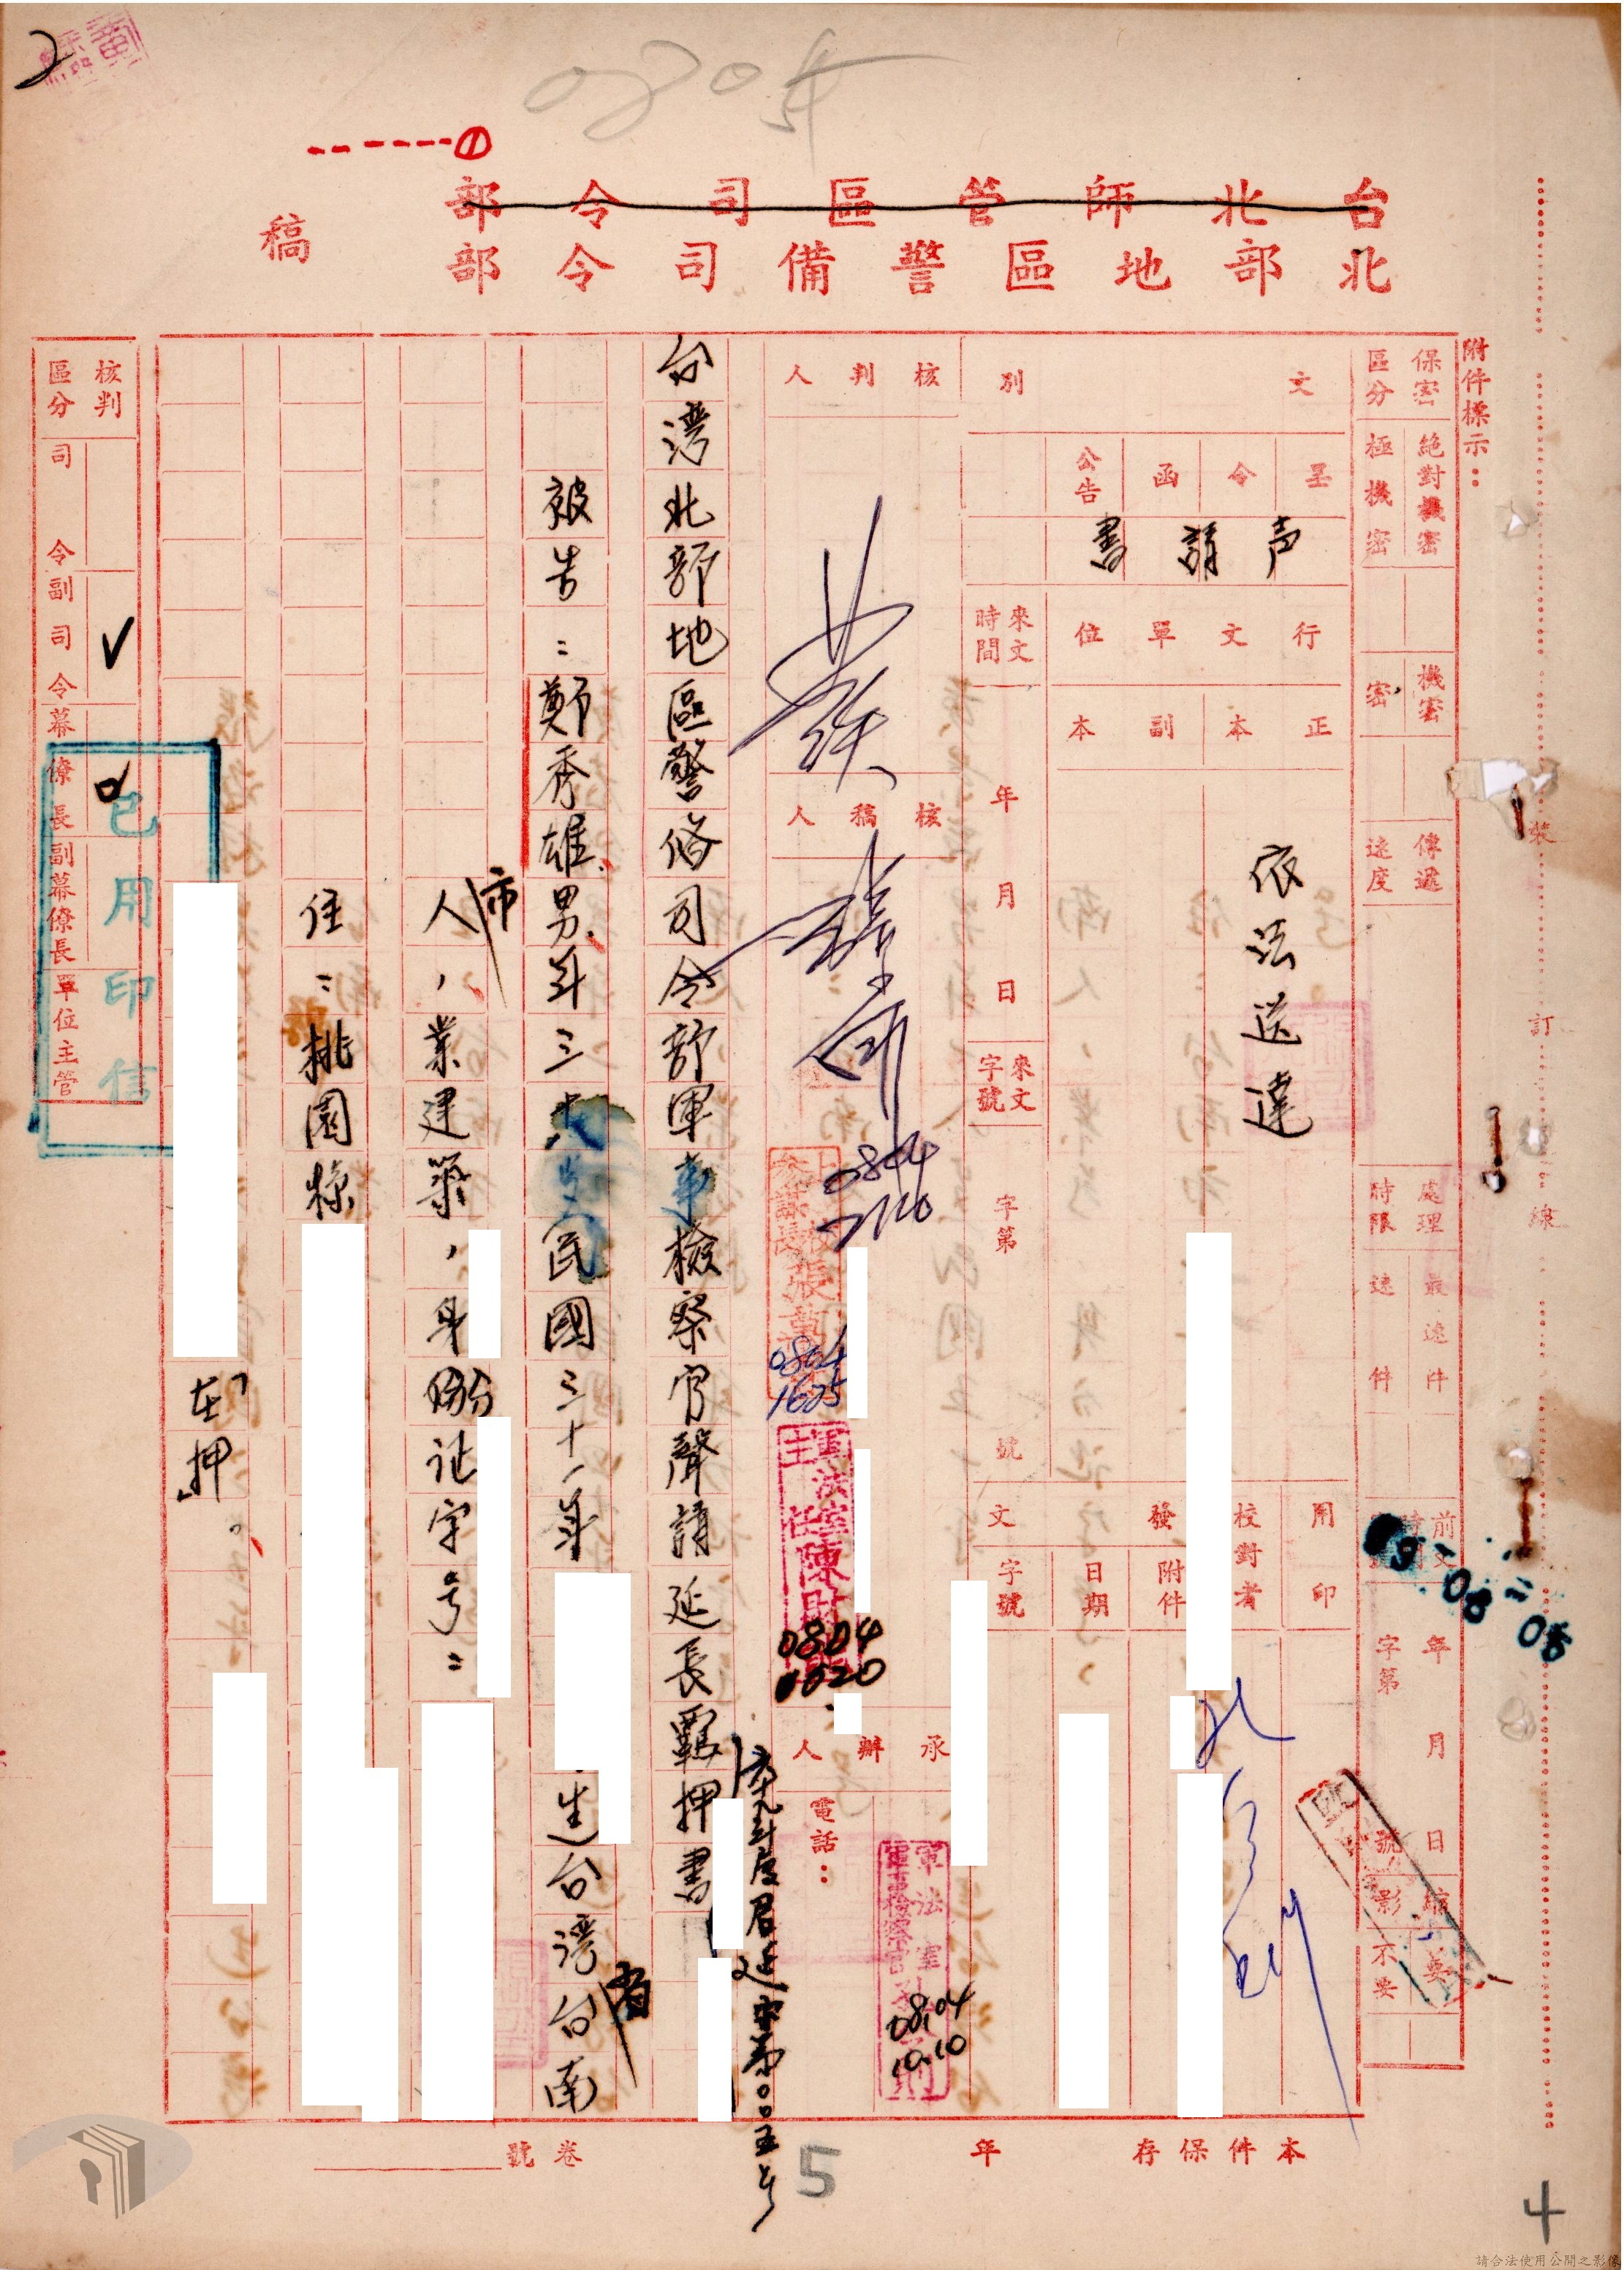 部令司區管師北台
稿
部令司備警區地部北
附件標示：
保密區分
絕對機密
極機密
機密
密
傳遞速度
處理時限
最速件
速件
前文
年月日
字第
號
縮影
要
不要
文別
呈
令
函
公告
声請書
行文單位
正本
副本
依法送達
來文時間
年
月
日
來文字號
字第
號
用印
校對者
發文
附件
日期
字號
核判人
核稿人
0804
0804
1625
0804
1620
承辦人
電話：
軍法室
0804
10.10
六十九年度君延字第〇〇五号
台湾北部地區警俻司令部軍事檢察官聲請延長羈押書
被告：鄭秀雄男年三十
民國三十一年
生台湾省台南
市人，業建築，身份証字号：
住：桃園縣
「在押」。
核判區分
司令
副司令
幕僚長
副幕僚長
單位主管
已用印信
09-08-05
裝
訂
線
本件保存
年
卷號
5
4
2
①
請合法使用公開之影像